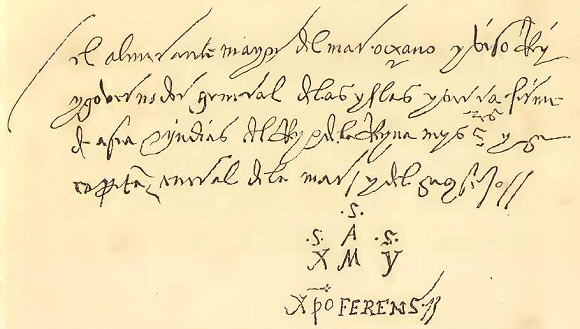 el almirante mayor del mar oceano y viso Rey
y governador general de las yslas y tierra firme
de asia & yndias del Rey & de la Reyna mys s^res y su
capitan general de la mar y del
.S.
.S. A .S.
X M Y
Xp̄o FERENS